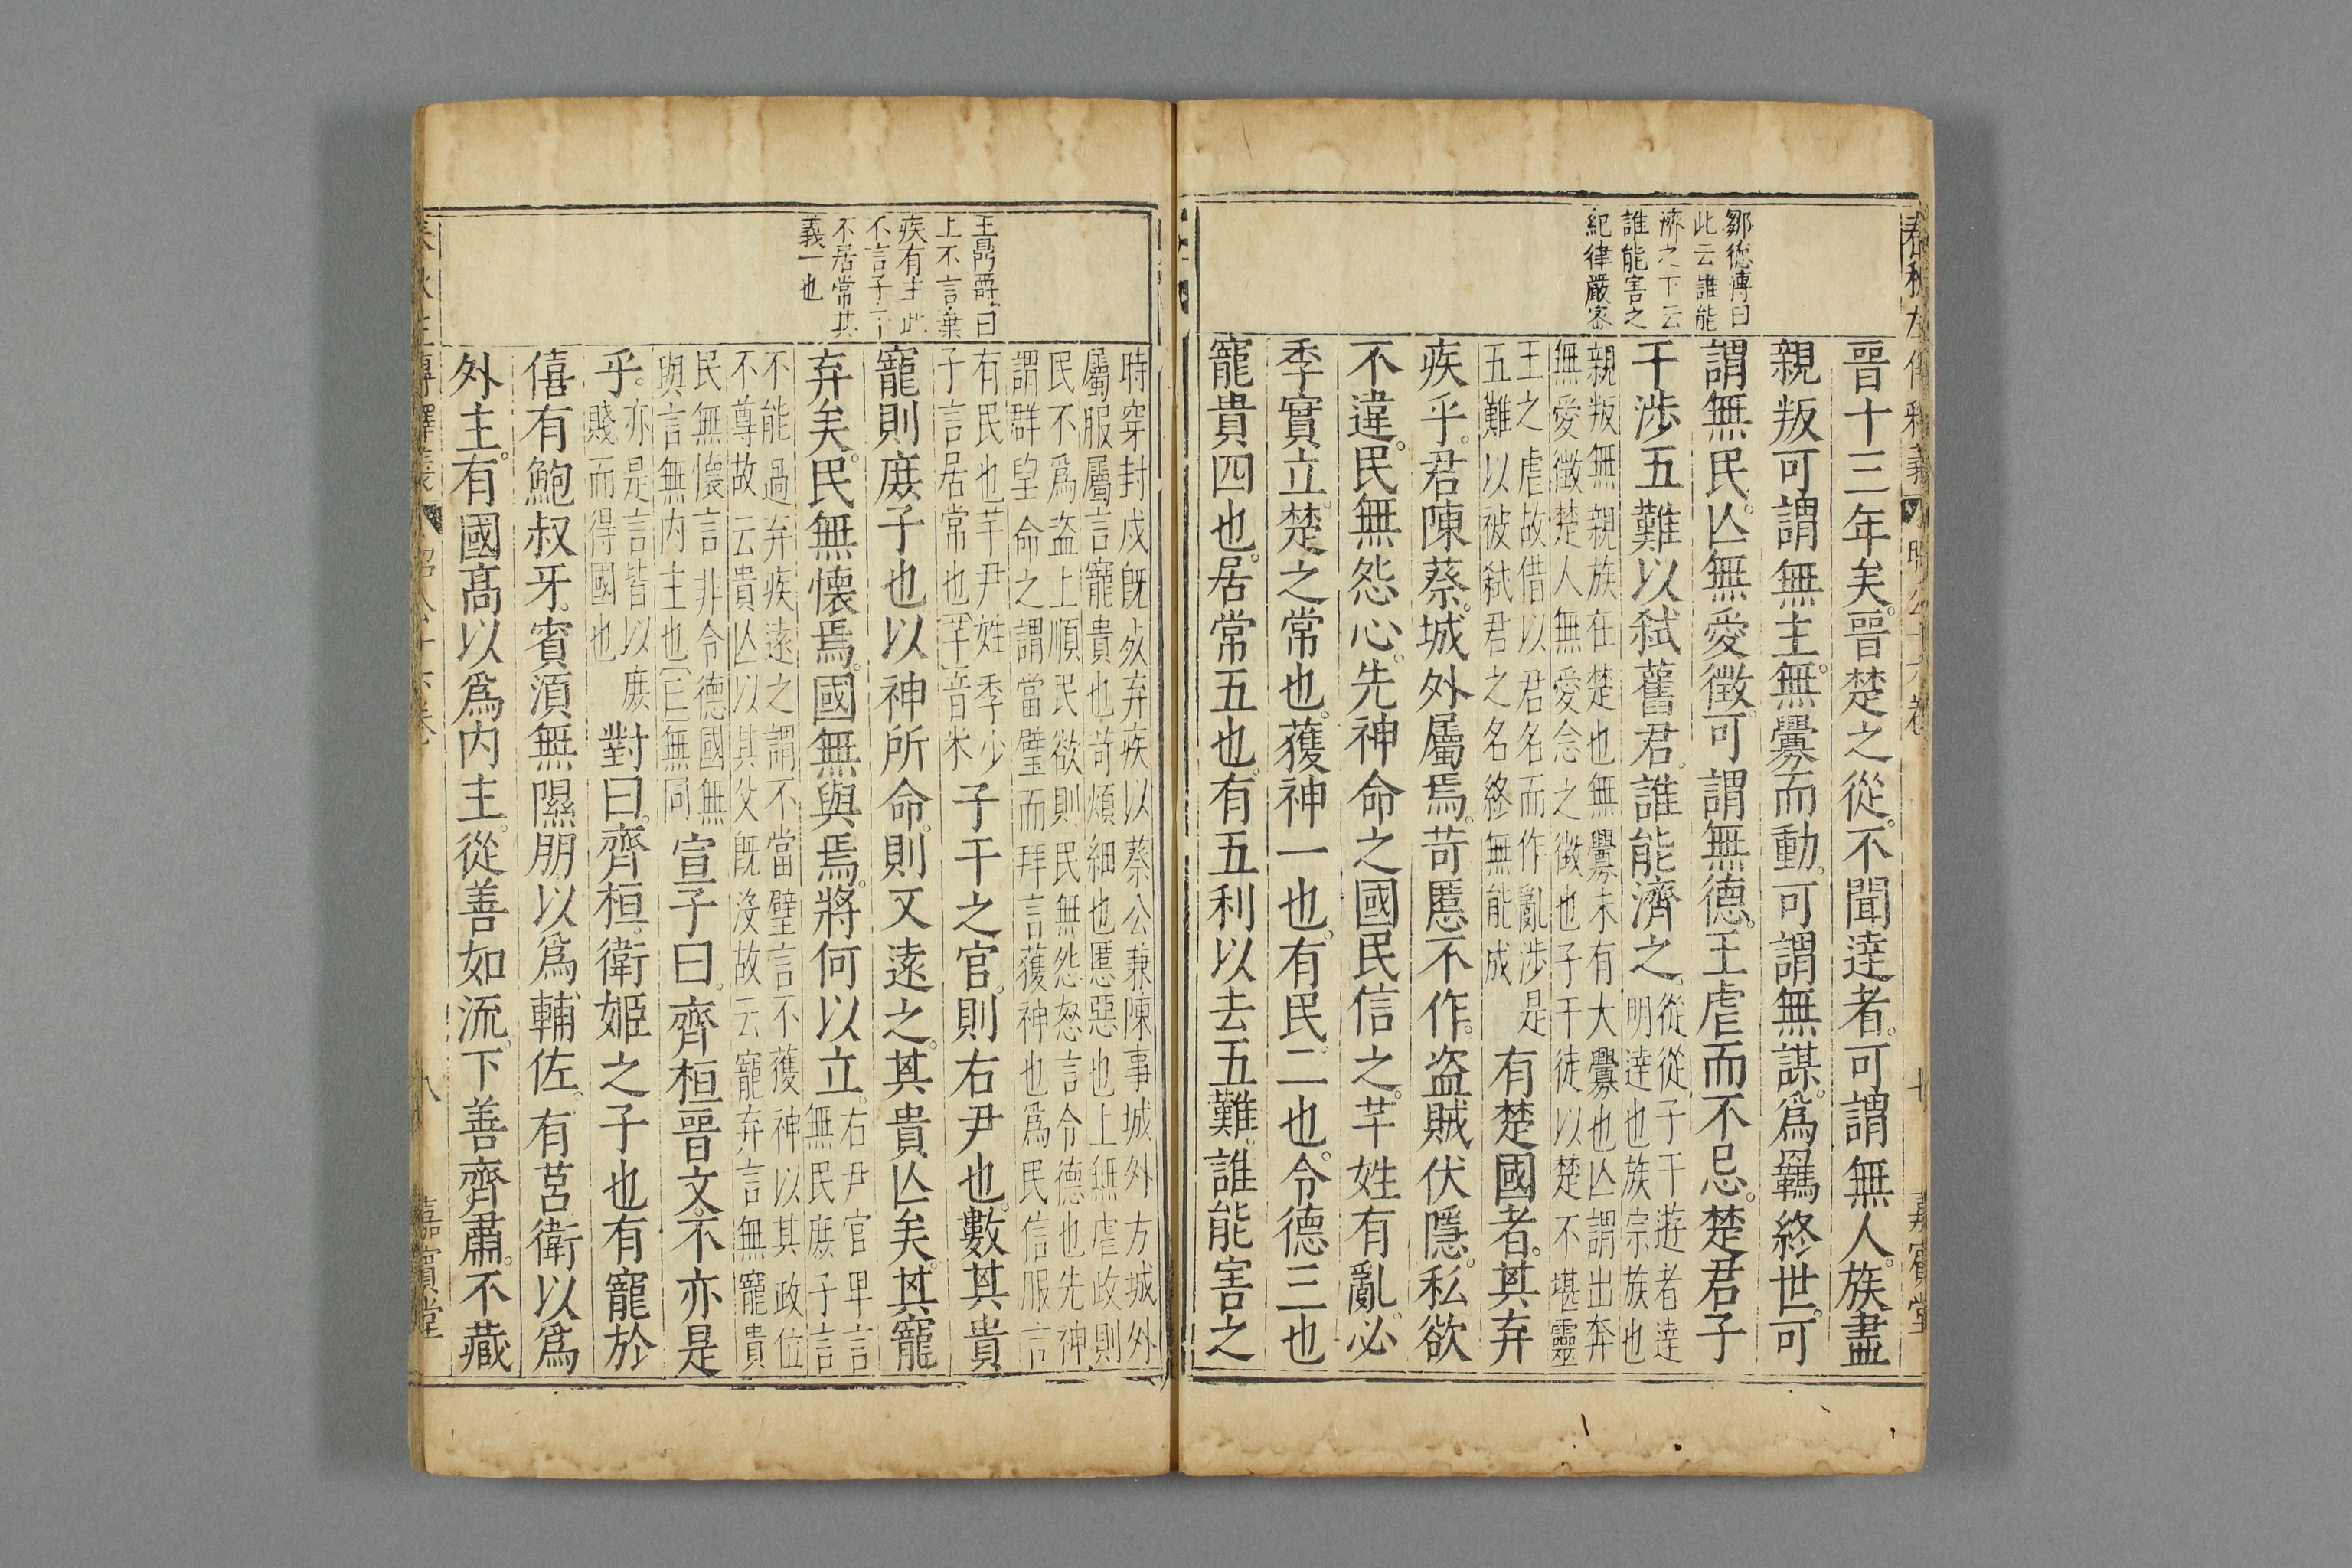 春秋左傳釋義
昭公十六卷
嘉賓堂
鄒德溥曰
此云誰能
濟之下云
誰能害之
紀律嚴密
晉十三年矣晉楚之從不聞達者可謂無人族盡
親叛可謂無主無釁而動可謂無謀爲羈終世可
謂無民亾無愛徵可謂無德王虐而不忌楚君子
干涉五難以弑舊君誰能濟之
從從子干遊者達
明達也族宗族也
親叛無親族在楚也無釁未有大釁也亾謂出奔
無愛徵楚人無愛念之徵也子干徒以楚不堪靈
王之虐故借以君名而作亂涉是
五難以被弑君之名終無能成
有楚國者其弃
疾乎君陳蔡城外屬焉苛慝不作盗賊伏隱私欲
不違民無怨心先神命之國民信之芊姓有亂必
季實立楚之常也獲神一也有民二也令德三也
寵貴四也居常五也有五利以去五難誰能害之
王鼎爵曰
上不言棄
疾有主此
不言子干
不居常其
義一也
時穿封戍既歿弃疾以蔡公兼陳事城外方城外
屬服屬言寵貴也苛煩細也慝惡也上無虐政則
民不爲盗上順民欲則民無怨怒言令德也先神
謂群望命之謂當璧而拜言獲神也爲民信服言
有民也芊尹姓季少
子言居常也芊音米
子干之官則右尹也數其貴
寵則庶子也以神所命則又遠之其貴亾矣其寵
弃矣民無懐焉國無與焉將何以立
右尹官卑言
無民庶子言
不能過弃疾遠之謂不當璧言不獲神以其政位
不尊故云貴亾以其父既沒故云寵弃言無寵貴
民無懷言非令德國無
與言無内主也
無同
宣子曰齊桓晉文不亦是
乎
亦是言皆以庶
賤而得國也
對曰齊桓衛姬之子也有寵於
僖有鮑叔牙賓湏無隰朋以爲輔佐有莒衛以爲
外主有國高以爲内主從善如流下善齊肅不藏
春秋左傳釋義
昭公十六卷
八
嘉賓堂